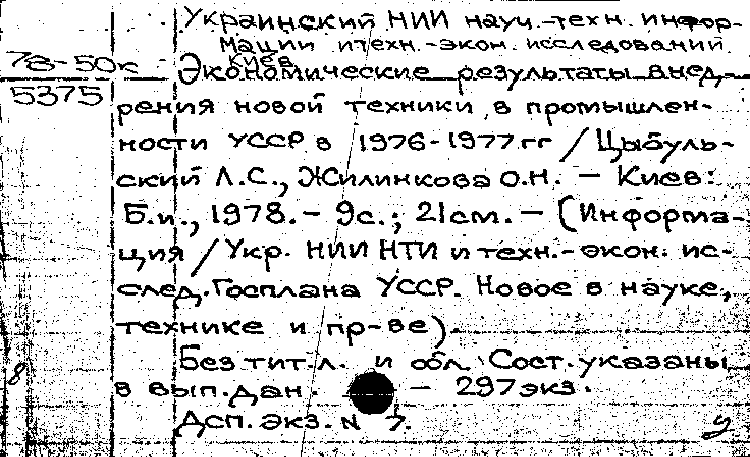 Украинский НИИ науч.-техн. инфор-
мации и техн.-экон. исследований.
Киев
78-50к
5375
Экономические результаты внед-
рения новой техники в промышлен-
ности УССР в 1976-1977 гг / Цыбуль-
ский Л.С., Жилинкова О.Н. – Киев:
Б.и., 1978. – 9с.; 21см. – (Информа-
ция / Укр. НИИ НТИ и техн.-экон. ис-
след. Госплана УССР. Новое в науке,
технике и пр-ве).
Без тит.л. и обл. Сост. указаны
в вып.дан. – 297 экз.
Дсп. экз. N 7.
8